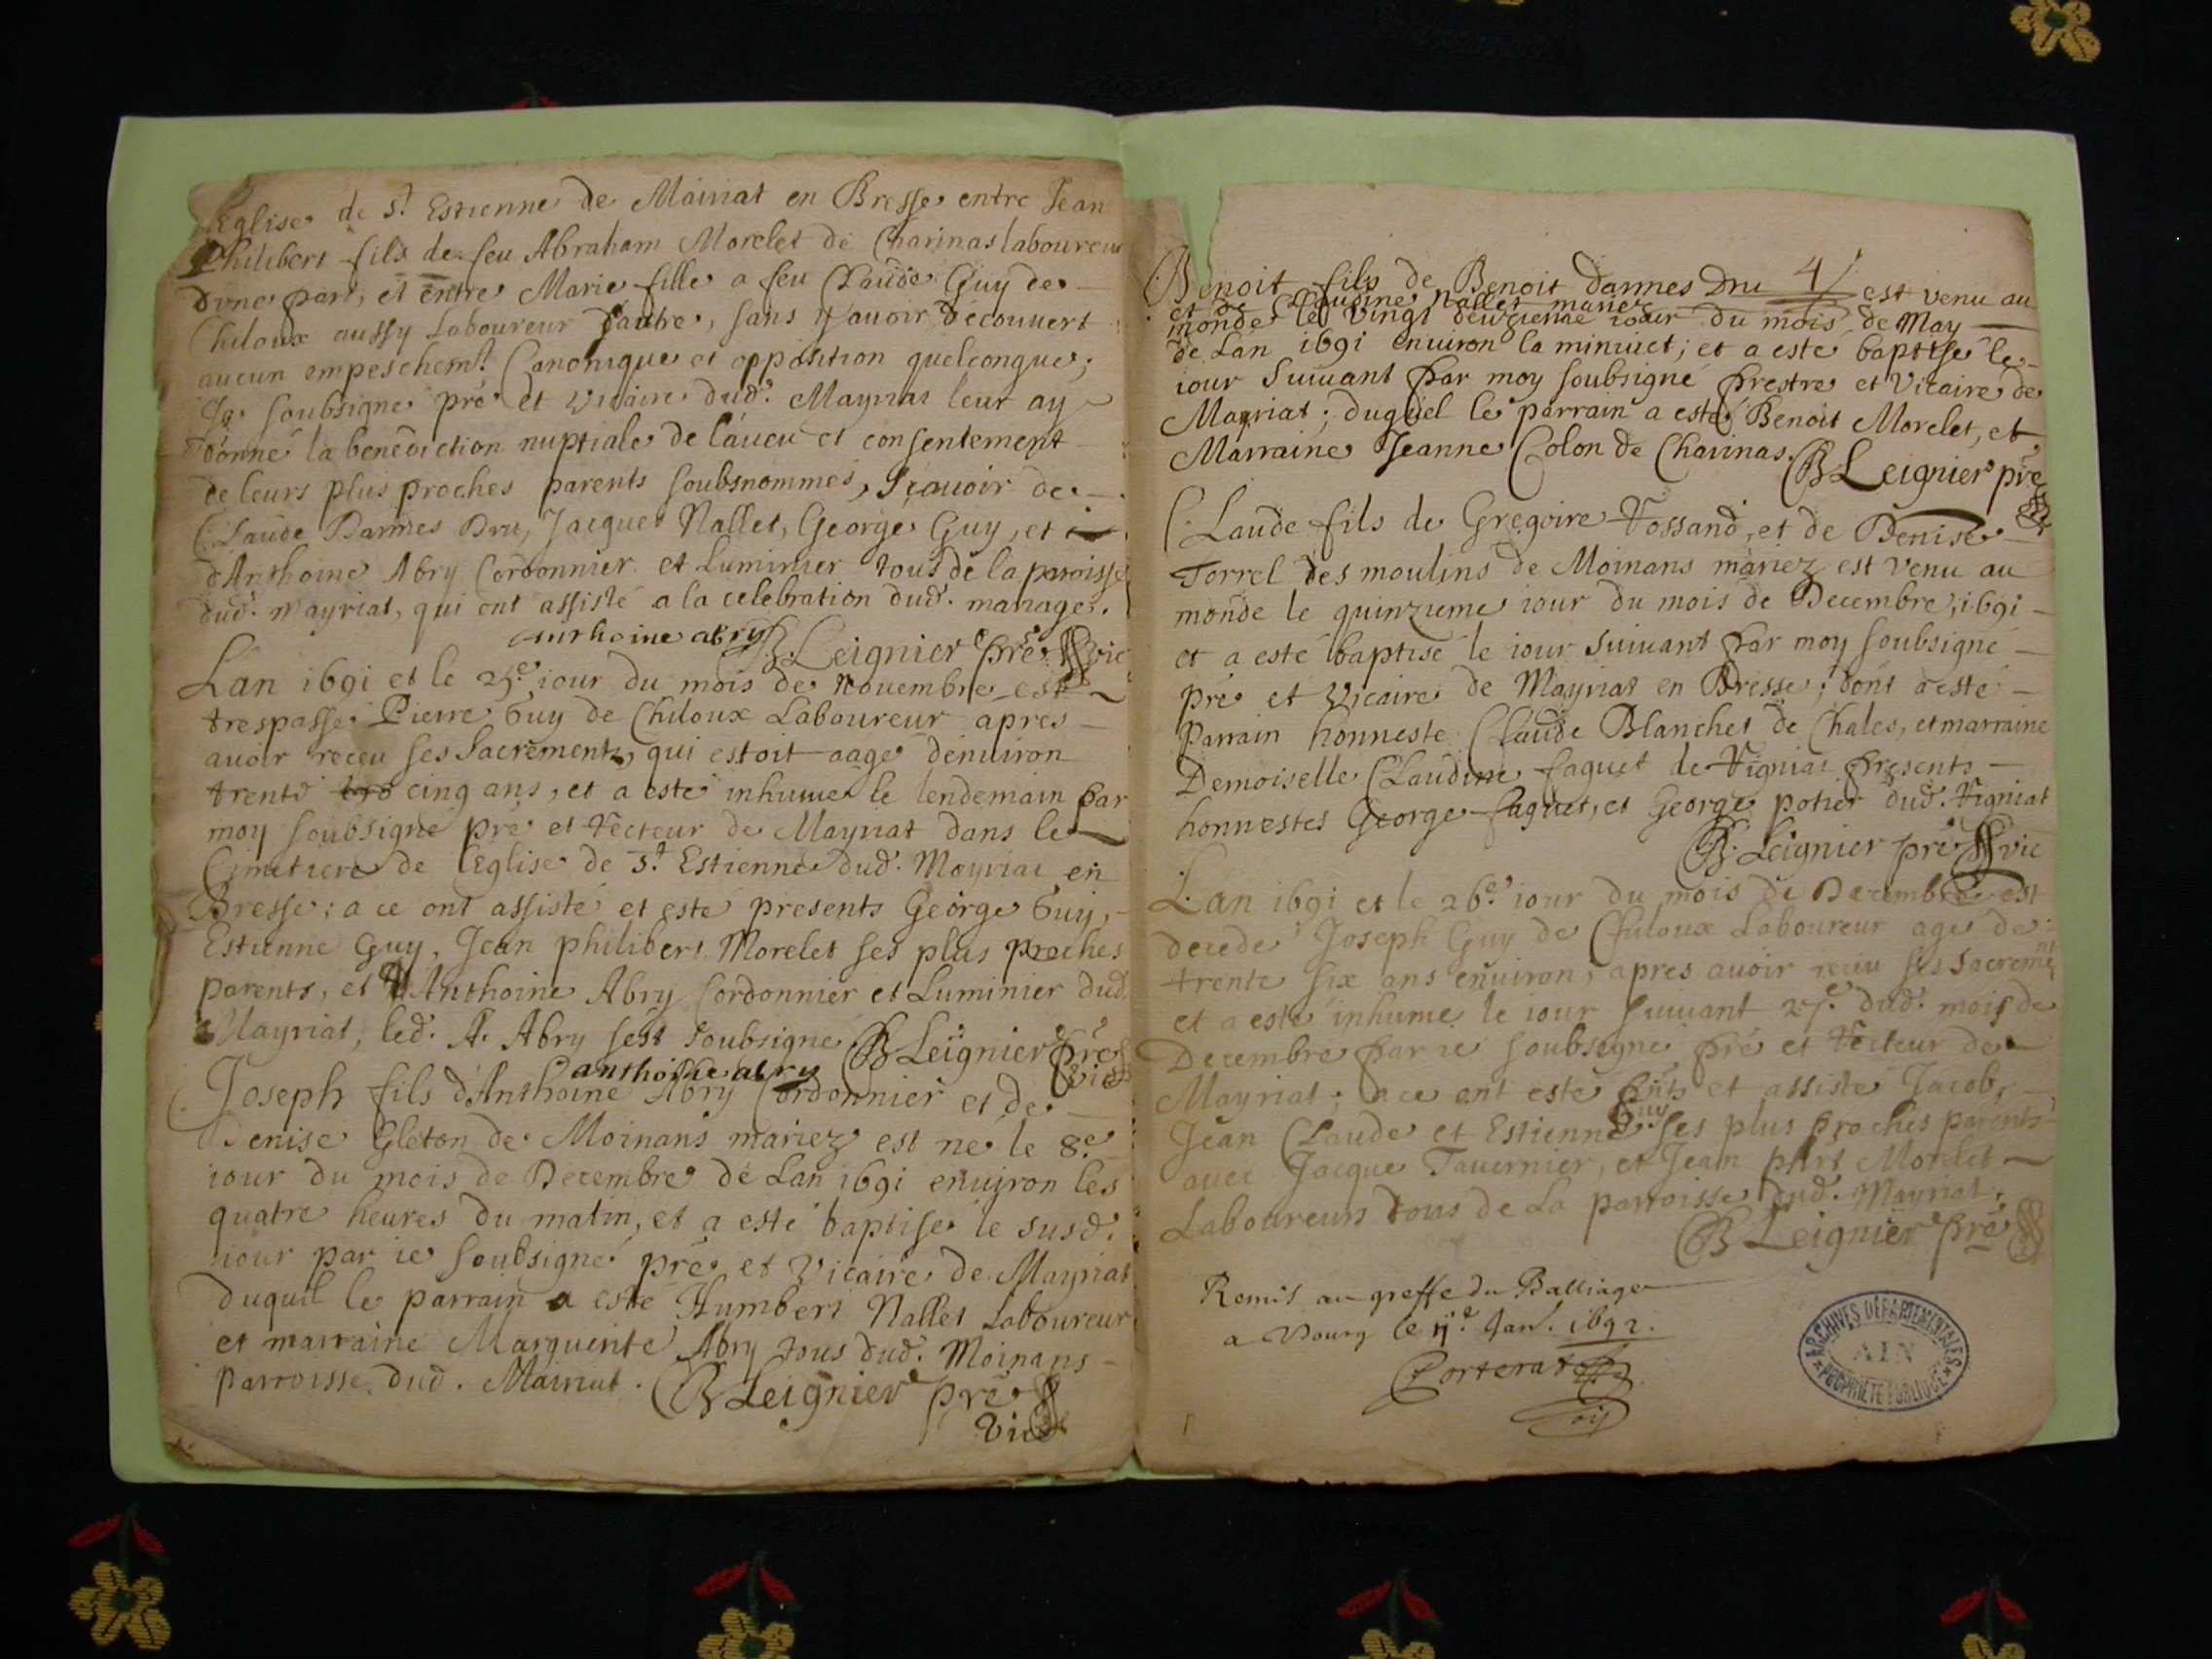 Eglise de St Estienne de Mairiat en Bresse entre Jean
Philibert fils de feu Abraham Morelet de Charinas laboureur
d'vne part, et entre Marie fille a feu Claude Guy de
Chiloux aussy Laboureur d'autre, sans y auoir découuert
aucun empeschemt Canonique et opposition quelconque;
Je soubsigne pré et Vicaire dud. Mayriat leur ay
donné la benediction nuptiale de l'aueu et consentement
de leurs plus proches parents soubsnommés, Sçauoir de
Claude Dannes Dru, Jacques Nallet, George Guy, et
d'Anthoine Abry Cordonnier et Luminier tous de la paroisse
dud. Mayriat, qui ont assisté a la celebration dud. mariage.
anthoine abry B Leignier pré vic
Lan 1691 et le 25e iour du mois de Nouembre est
trespassé Pierre Guy de Chiloux Laboureur apres
auoir receu ses Sacrements, qui estoit aagé denuiron
trente cinq ans, et a esté inhumé le lendemain par
moy soubsigné pré et Recteur de Mayriat dans le
Cimetiere de l'Eglise de St Estienne dud. Mayriat en
Bresse: a ce ont assisté et esté presents George Guy,
Estienne Guy, Jean philibert Morelet ses plus proches
parents, et Anthoine Abry Cordonnier et Luminier dud.
Mayriat, led. A. Abry s'est soubsigné B Leignier pré
anthoine abry vic
Joseph fils d'Anthoine Abry Cordonnier et de
Denise Gleton de Moinans mariez est né le 8e
iour du mois de Decembre de Lan 1691 enuiron les
quatre heures du matin, et a esté baptisé le susd.
iour par ie soubsigné pré et Vicaire de Mayriat
duquel le parrain a esté Humbert Nallet Laboureur
et marraine Marguerite Abry tous dud. Moinans
parroisse dud. Mairiat. B Leignier pré
Vic
Benoit fils de Benoit Dannes Dru 4 est venu au
et de Claudine Nallet mariez
monde le vingt deuxieme iour du mois de May
de Lan 1691 enuiron la minuict; et a esté baptisé le
iour Suiuant par moy soubsigné prestre et Vicaire de
Mayriat; duquel le parrain a esté Benoit Morelet, et
Marraine Jeanne Colon de Charinas. B Leignier pré
Claude fils de Gregoire Vossand, et de Denise
Torrel des moulins de Moinans mariez est venu au
monde le quinzieme iour du mois de Decembre, 1691
et a esté baptisé le iour Suiuant par moy soubsigné
pré et Vicaire de Mayriat en Bresse; dont a esté
Parrain honneste Claude Blanchet de Chales, et marraine
Demoiselle Claudine faguet de Vigniat presents
honnestes George faguet, et George potier dud. Vigniat
B. Leignier pré vic
Lan 1691 et le 26e iour du mois de Decembre est
decedé Joseph Guy de Chiloux Laboureur agé de
trente six ans enuiron, apres auoir receu ses Sacremnt
et a esté inhumé le iour suiuant 27e dud. mois de
Decembre par ie soubsigné pré et Recteur de
Mayriat; a ce ont esté pnts et assisté Jacob,
Jean Claude et Estienne Guy ses plus proches parents
auec Jacque Tauernier, et Jean phbt Morelet
Laboureurs tous de La parroisse dud. Mayriat.
B Leignier pré
Remis au greffe du Balliage
a Bourg le 11e Jan. 1692.
ARCHIVES DÉPARTEMENTALES
AIN
PROPRIÉTÉ PUBLIQUE